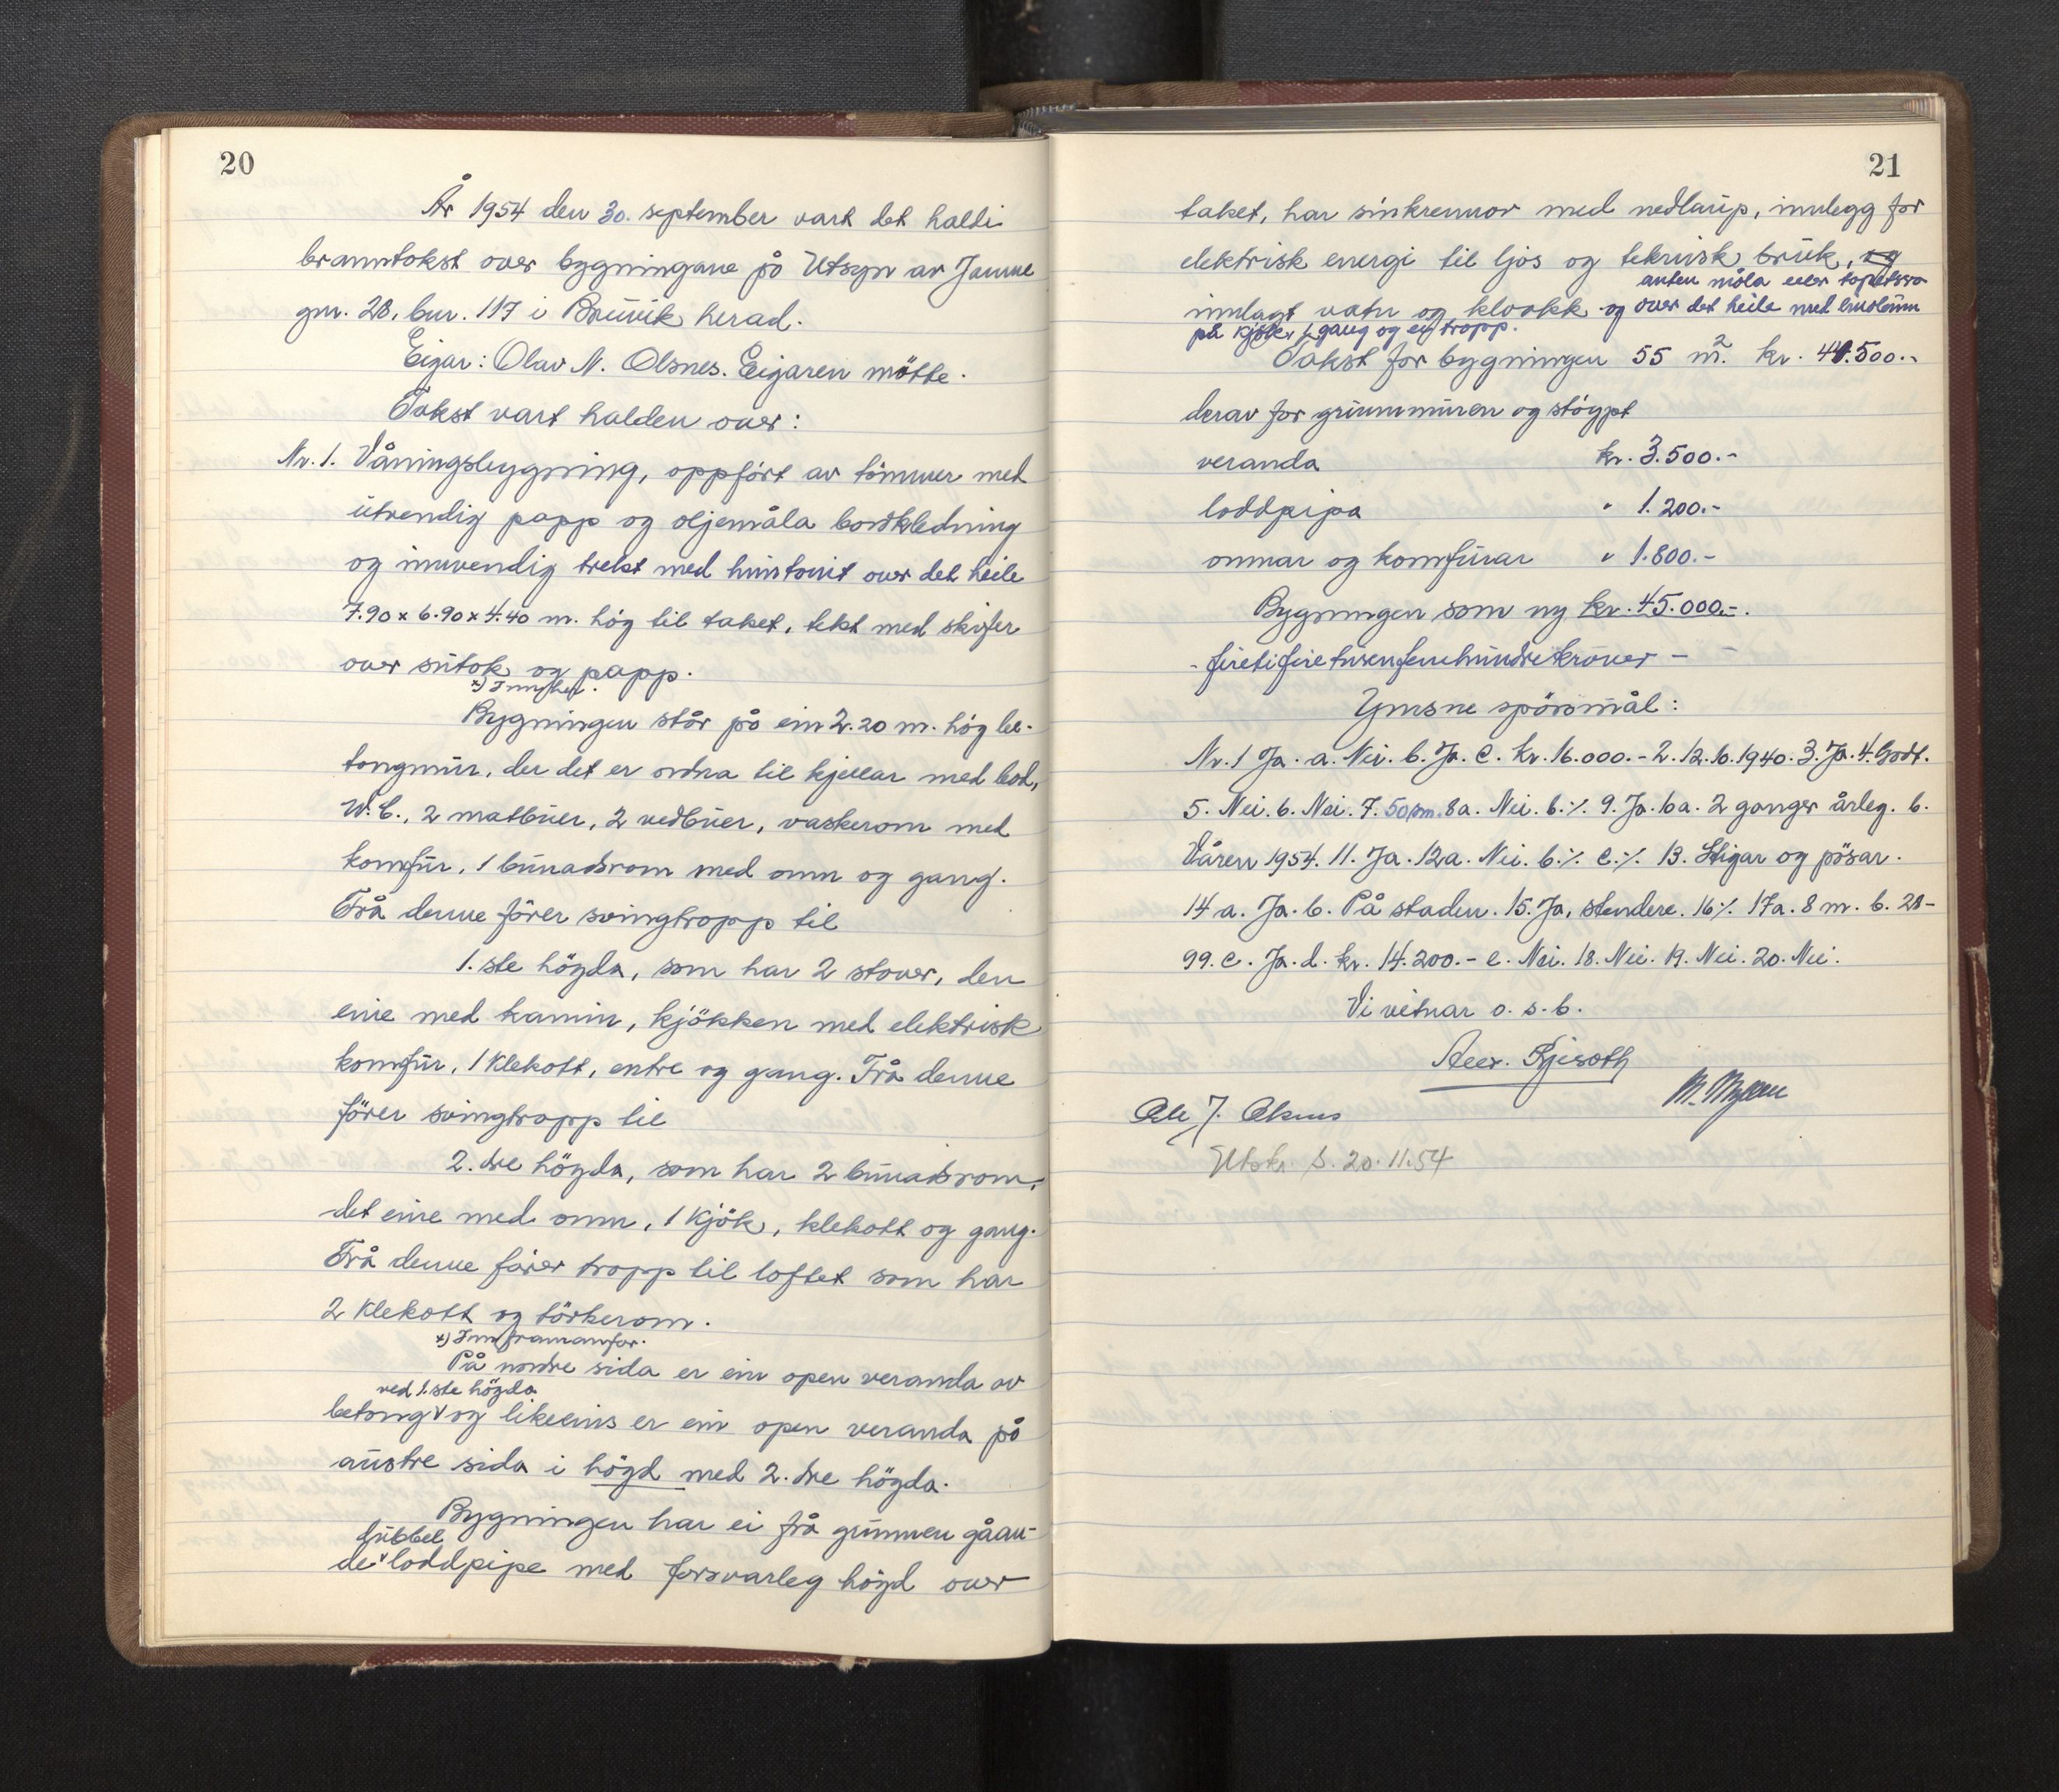 20
År 1954 den 30. september vart det haldi
branntakst over bygningane på Utsyn av Jamne
gnr. 28, bnr. 117 i Bruvik herad.
Eigar: Olav N. Olsnes. Eigaren mötte.
Takst vart halden over:
Nr. 1. Våningsbygning, oppfört av tömmer med
utvendig papp og oljemåla bordkledning
og innvendig trekt med huntonit over det heile
7.90 x 6.90 x 4.40 m. hög til taket, tekt med skifer
over sutak og papp.
x) Innher.
Bygningen står på ein 2.20 m. hög be-
tongmur, der det er ordna til kjellar med bod,
W.C., 2 matbuer, 2 vedbuer, vaskerom med
komfur, 1 bunadsrom med omn og gang.
Frå denne förer svingtrapp til
1. ste högda, som har 2 stover, den
eine med kamin, kjökken med elektrisk
komfur, 1 klekott, entre og gang. Frå denne
förer svingtrapp til
2. dre högda, som har 2 bunadsrom,
det eine med omn, 1 kjök, klekott og gang.
Frå denne förer trapp til loftet som har
2 klekott og törkerom.
x) Inn framanfor.
På nordre sida er ein open veranda av
ved 1. ste högda
betong v og likeeins er ein open veranda på
austre sida i högd med 2. dre högda.
Bygningen har ei frå grunnen gåan-
dubbel
de v loddpipe med forsvarleg högd over
21
taket, har sinkrennor med nedlaup, innlegg for
elektrisk energi til ljos og teknisk bruk, og
anten måla eller tapetsera
innlagt vatn og kloakk og over det heile med linoleum
på kjöken, gang og ei trapp.
Takst for bygningen 55 m². kr. 44.500.-
derav for grunnmuren og stöypt
veranda kr. 3.500.-
loddpipa " 1.200.-
omnar og komfurar " 1.800.-
Bygningen som ny kr. 45.000.-.
- firetifiretusenfemhundrekroner -
Ymsne spörsmål:
Nr. 1 Ja. a. Nei. b. Ja. c. kr. 16.000.- 2. 12.10.1940. 3. Ja. 4. Godt.
5. Nei. 6. Nei. 7. 50 m. 8a. Nei. b. ⁒ 9. Ja. 10a. 2 ganger årleg. b.
Våren 1954. 11. Ja. 12a. Nei. b. ⁒ c. ⁒ 13. Stigar og pösar.
14 a. Ja. b. På staden. 15. Ja, stendere. 16 ⁒ 17a. 8 m. b. 28-
99. c. Ja. d. kr. 14.200.- e. Nei. 18. Nei. 19. Nei. 20. Nei.
Vi vitnar o. s. b.
Utskr. s. 20.11.54